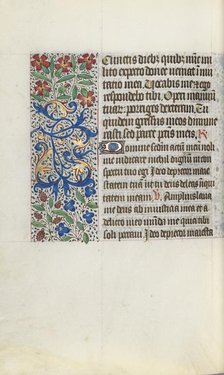 Cunctis diebus quibus nunc mi
lito expecto donec veniat inmu
tatio mea Vocabis me et ego
respondebo tibi. Operi manuum
tuarum porriges dexteram. Tu
quidem gressus meos dinume
rasti sed parce peccatis meis. R
Domine secundum actum meum noli
me iudicare nichil dignum in con
spectu tuo egi Ideo deprecor maies
tatem tuam ut tu deus deleas iniqui
tatem meam V. Amplius lava
me deus ab iniusticia mea et a
delicto meo munda me quia tibi
soli peccavi Ideo deprecor maiesta